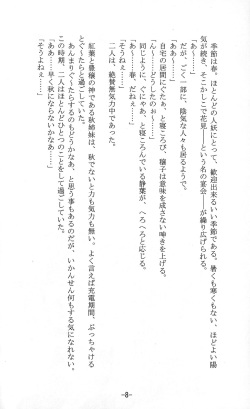 季節は春。ほとんどの人妖にとって、歓迎出来るいい季節である。暑くも寒くもない、ほどよい陽
気が続き、そこかしこで花見――という名の宴会――が繰り広げられる。
だが、ごく一部に、陰気な人々も居るようで。
「ああ～……」
自宅の居間にぐたぁ、と寝ころび、穣子は意味を成さない呻きを上げる。
「ん～……どうしたの～……」
同じように、ぐにやぁ、と寝ころんでいる静葉が、へろへろと応じる。
「あ～……春、だねぇ……」
「そうねぇ……」
二人は、絶賛無気力中であった。
紅葉と豊穣の神である秋姉妹は、秋でないと力も気力も無い。よく言えば充電期間、ぶっちゃける
とぐうたらと過ごしていた。
あんまりぐうたらするのもどうかなあ、と思う事もあるのだが、いかんせん何もする気になれない。
この時期、二人はほとんどひとつのことをして過ごしていた。
「ああ……早く秋にならないかなあ……」
「そうよねぇ……」
-8-